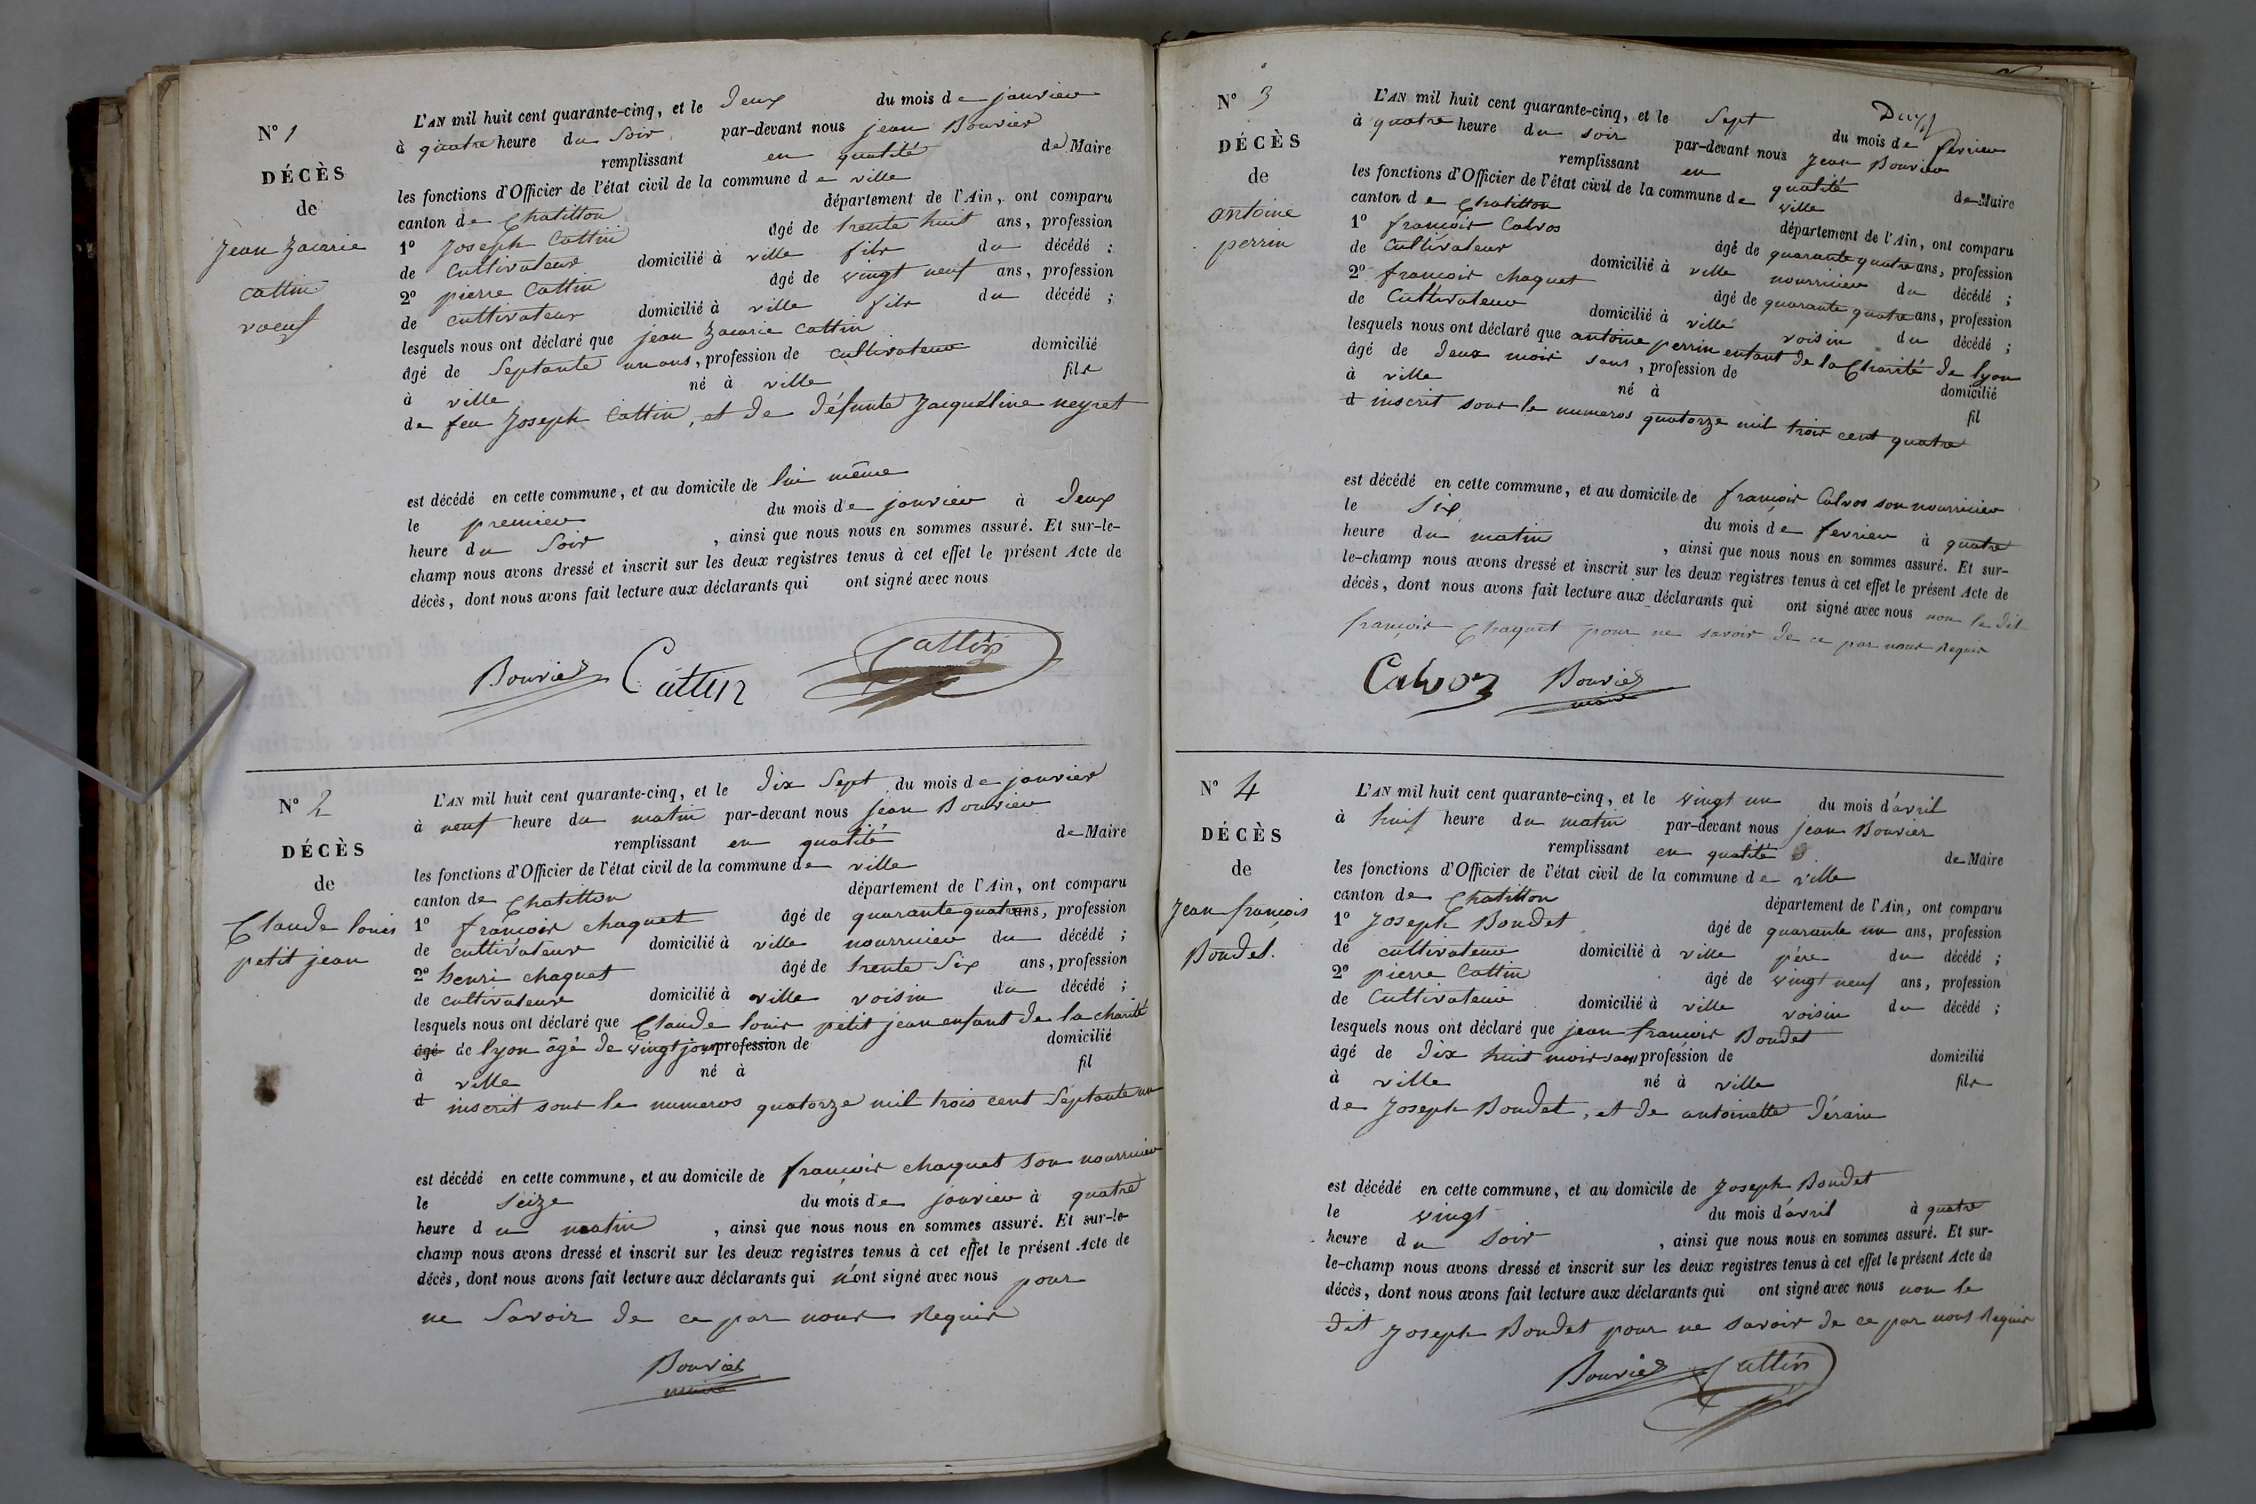 N° 1
DÉCÈS
de
Jean Zacarie
cattin
voeuf
L'AN mil huit cent quarante-cinq, et le deux du mois de janvier
à quatre heure du Soir par-devant nous jean Bouvier
remplissant en qualité de Maire
les fonctions d'Officier de l'état civil de la commune de ville
canton de Chatillon département de l'Ain, ont comparu
1° Joseph Cattin âgé de trente huit ans, profession
de Cultivateur domicilié à ville fils du décédé ;
2° pierre Cattin âgé de vingt neuf ans, profession
de cultivateur domicilié à ville fils du décédé ;
lesquels nous ont déclaré que jean Zacarie Cattin
âgé de Septante un ans, profession de cultivateur domicilié
à ville né à ville fils
de feu Joseph Cattin, et de défunte Jacqueline neyret
est décédé en cette commune, et au domicile de lui même
le premier du mois de janvier à deux
heure du Soir, ainsi que nous nous en sommes assuré. Et sur-le-
champ nous avons dressé et inscrit sur les deux registres tenus à cet effet le présent Acte de
décès, dont nous avons fait lecture aux déclarants qui ont signé avec nous
Bouvier Cattin Cattin
N° 2
DÉCÈS
de
Claude louis
petit jean
L'AN mil huit cent quarante-cinq, et le dix Sept du mois de janvier
à neuf heure du matin par-devant nous jean Bouvier
remplissant en qualité de Maire
les fonctions d'Officier de l'état civil de la commune de ville
canton de Chatillon département de l'Ain, ont comparu
1° françois chaquet âgé de quarante quatre ans, profession
de cultivateur domicilié à ville nourricier du décédé ;
2° henri chaquet âgé de trente Six ans, profession
de cultivateur domicilié à ville voisin du décédé ;
lesquels nous ont déclaré que Claude louis petit jean enfant de la charité
âgé de lyon âgé de vingt jours profession de domicilié
à ville né à fil
d inscrit sous le numeros quatorze mil trois cent Septante un
est décédé en cette commune, et au domicile de françois chaquet son nourricier
le Seize du mois de janvier à quatre
heure du matin, ainsi que nous nous en sommes assuré. Et sur-le-
champ nous avons dressé et inscrit sur les deux registres tenus à cet effet le présent Acte de
décès, dont nous avons fait lecture aux déclarants qui n'ont signé avec nous pour
ne Savoir de ce par nous Requis
Bouvier
maire
N° 3
DÉCÈS
de
antoine
perrin
L'AN mil huit cent quarante-cinq, et le Sept du mois de fevrier
à quatre heure du soir par-devant nous Jean Bouvier
remplissant en qualité de Maire
les fonctions d'Officier de l'état civil de la commune de ville
canton de Chatillon département de l'Ain, ont comparu
1° françois Calvos âgé de quarante quatre ans, profession
de Cultivateur domicilié à ville nourricier du décédé ;
2° françois chaquet âgé de quarante quatre ans, profession
de Cultivateur domicilié à ville voisin du décédé ;
lesquels nous ont déclaré que antoine perrin enfant de la Charité de lyon
âgé de deux mois sans, profession de domicilié
à ville né à fil
d inscrit sous le numeros quatorze mil trois cent quatre
est décédé en cette commune, et au domicile de françois Calvos son nourricier
le Six du mois de fevrier à quatre
heure du matin, ainsi que nous nous en sommes assuré. Et sur-
le-champ nous avons dressé et inscrit sur les deux registres tenus à cet effet le présent Acte de
décès, dont nous avons fait lecture aux déclarants qui ont signé avec nous non le dit
françois Chaquet pour ne savoir de ce par nous Requis
Calvoz Bouvier
maire
N° 4
DÉCÈS
de
Jean françois
Boudet.
L'AN mil huit cent quarante-cinq, et le vingt un du mois d'avril
à huit heure du matin par-devant nous jean Bouvier
remplissant en qualité de Maire
les fonctions d'Officier de l'état civil de la commune de ville
canton de Chatillon département de l'Ain, ont comparu
1° Joseph Boudet âgé de quarante un ans, profession
de cultivateur domicilié à ville père du décédé ;
2° pierre Cattin âgé de vingt neuf ans, profession
de Cultivateur domicilié à ville voisin du décédé ;
lesquels nous ont déclaré que jean françois Boudet
âgé de dix huit mois sans profession de domicilié
à ville né à ville fils
de Joseph Boudet, et de antoinette dérain
est décédé en cette commune, et au domicile de Joseph Boudet
le vingt du mois d'avril à quatre
heure du Soir, ainsi que nous nous en sommes assuré. Et sur-
le-champ nous avons dressé et inscrit sur les deux registres tenus à cet effet le présent Acte de
décès, dont nous avons fait lecture aux déclarants qui ont signé avec nous non le
dit Joseph Boudet pour ne savoir de ce par nous Requis
Bouvier Cattin